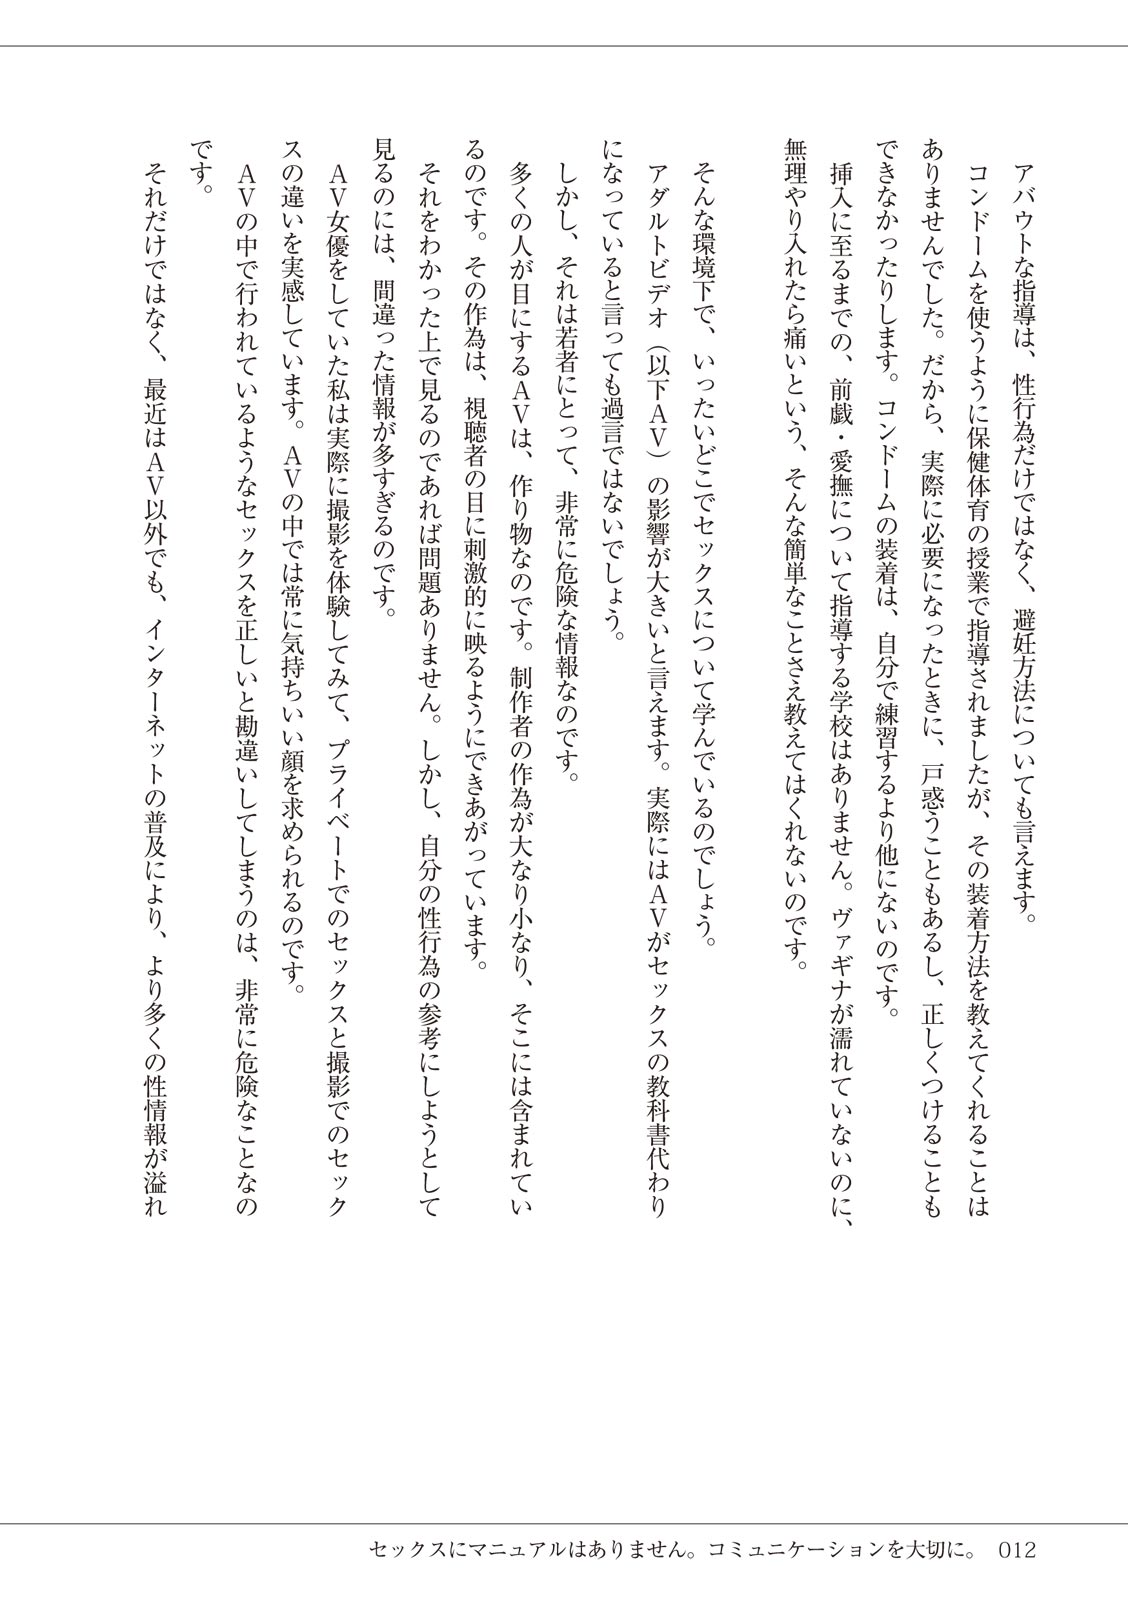 アバウトな指導は、性行為だけではなく、避妊方法についても言えます。
コンドームを使うように保健体育の授業で指導されましたが、その装着方法を教えてくれることは
ありませんでした。だから、実際に必要になったときに、戸惑うこともあるし、正しくつけることも
できなかったりします。コンドームの装着は、自分で練習するより他にないのです。
挿入に至るまでの、前戯・愛撫について指導する学校はありません。ヴァギナが濡れていないのに、
無理やり入れたら痛いという、そんな簡単なことさえ教えてはくれないのです。
そんな環境下で、いったいどこでセックスについて学んでいるのでしょう。
アダルトビデオ（以下ＡＶ）の影響が大きいと言えます。実際にはＡＶがセックスの教科書代わり
になっていると言っても過言ではないでしょう。
しかし、それは若者にとって、非常に危険な情報なのです。
多くの人が目にするＡＶは、作り物なのです。制作者の作為が大なり小なり、そこには含まれてい
るのです。その作為は、視聴者の目に刺激的に映るようにできあがっています。
それをわかった上で見るのであれば問題ありません。しかし、自分の性行為の参考にしようとして
見るのには、間違った情報が多すぎるのです。
ＡＶ女優をしていた私は実際に撮影を体験してみて、プライベートでのセックスと撮影でのセック
スの違いを実感しています。ＡＶの中では常に気持ちいい顔を求められるのです。
ＡＶの中で行われているようなセックスを正しいと勘違いしてしまうのは、非常に危険なことなの
です。
それだけではなく、最近はＡＶ以外でも、インターネットの普及により、より多くの性情報が溢れ
セックスにマニュアルはありません。コミュニケーションを大切に。 012